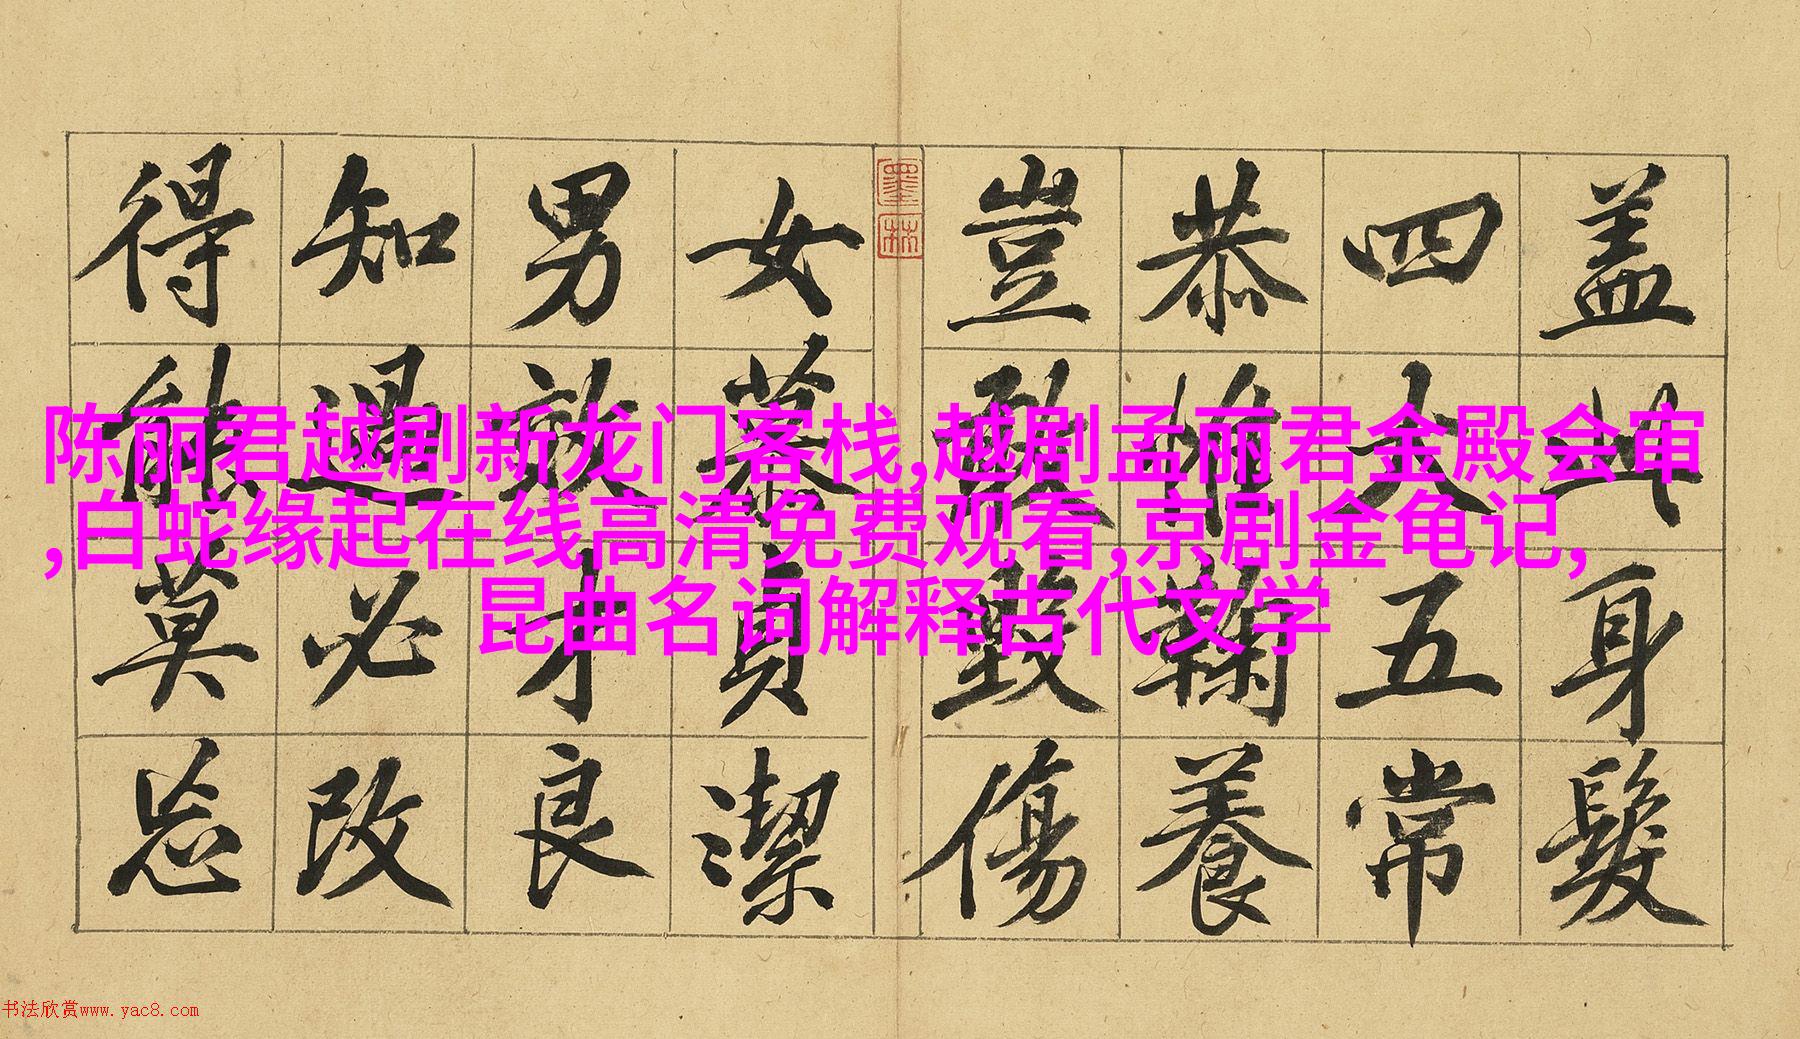 陈丽君越剧新龙门客栈,越剧孟丽君金殿会审
,白蛇缘起在线高清免费观看,京剧金龟记,
昆曲名词解释古代文学
盖此身髮
四大五常
恭惟鞠養
豈敢毀傷
墨林
女慕貞潔
男效才良
知過必改
得能莫忘
书法欣赏www.yac8.com